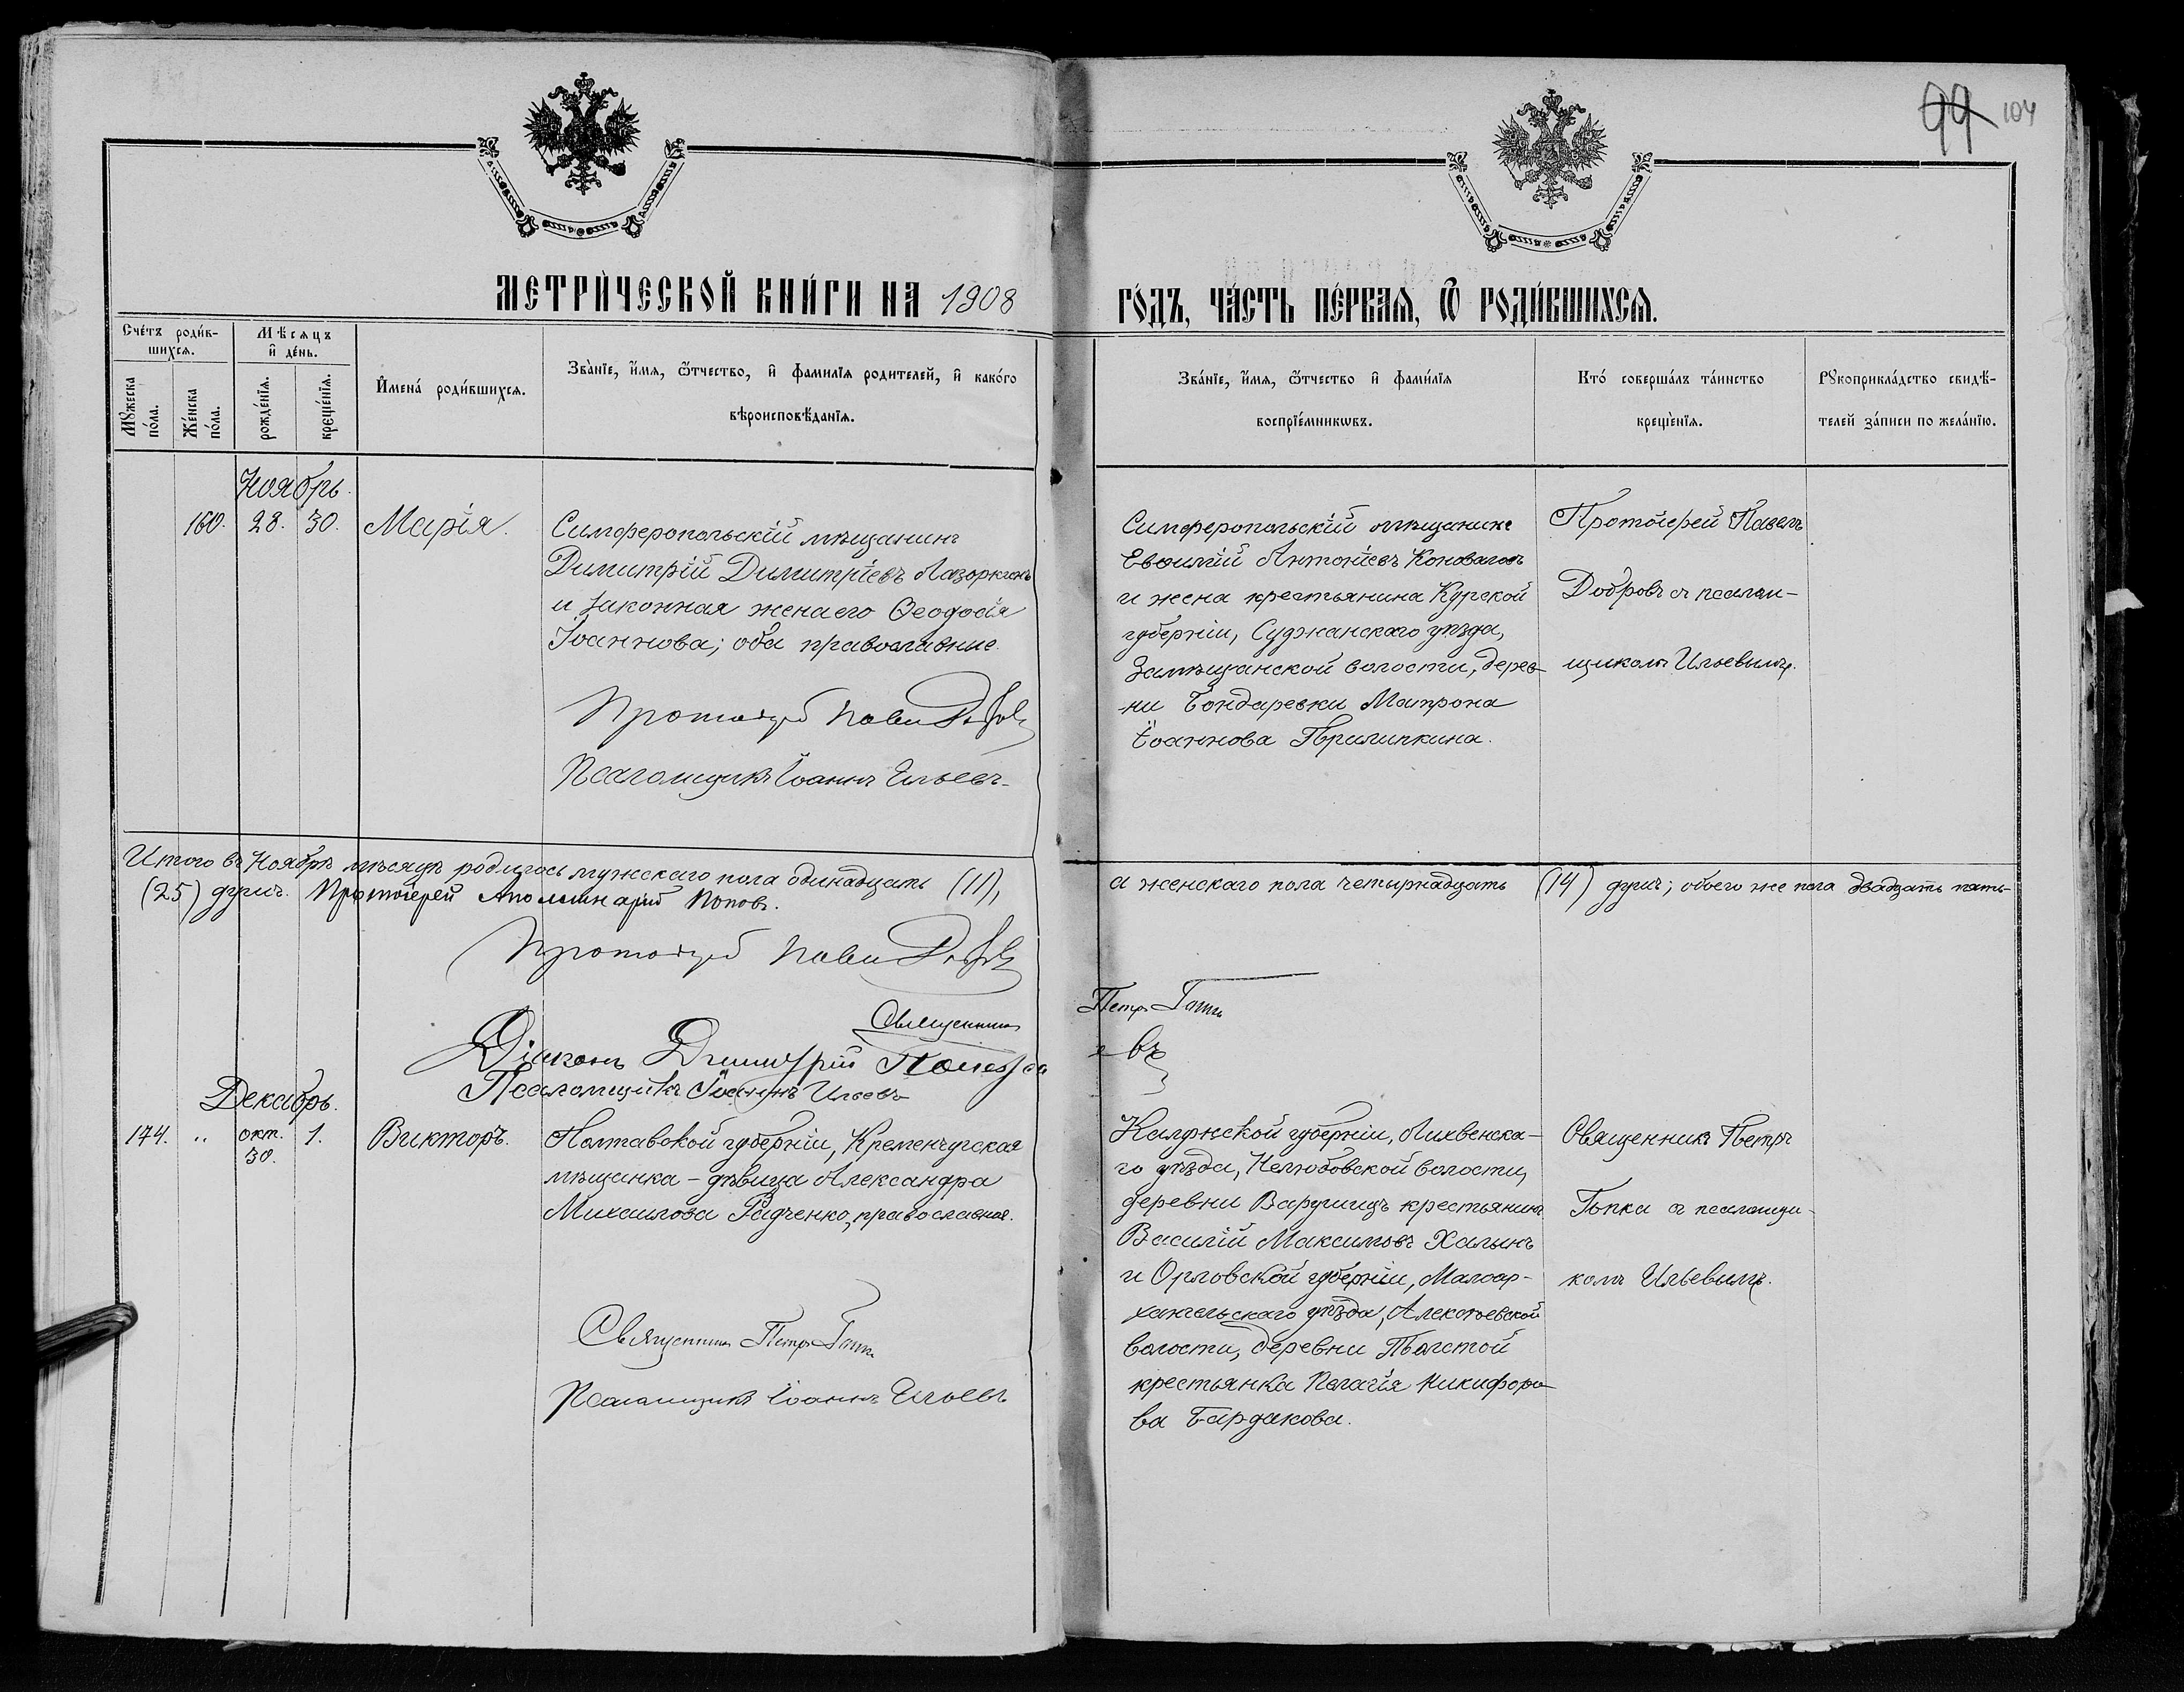 99 104
МЕТРИ́ЧЕСКОЙ КНИ́ГИ НА 1908
ГО́ДЪ, ЧА́СТЬ ПЕ́РВАѦ, Ѿ РОДИ́ВШИХСѦ.
Сче́тъ роди́в-
шихсѧ.
Мꙋ́жеска
по́ла.
Же́нска
по́ла.
Мѣ́сѧцъ
и҆ де́нь.
рожде́нїѧ.
креще́нїѧ.
И҆мена́ роди́вшихсѧ.
Зва́нїе, и҆́мѧ, ѻ҆́тчество, и҆ фами́лїѧ родителей, и҆ како́гѡ
вѣроисповѣ́данїѧ.
Зва́нїе, и҆́мѧ, ѻ҆́тчество и҆ фами́лїѧ
воспрїе́мникѡвъ.
Кто́ соверша́лъ та́инство
креще́нїѧ.
Рꙋкоприкла́дство свидѣ́-
телей за́писи по жела́нїю.
Ноябрь.
160. 28. 30. Марія.
Симферопольскій мѣщанинъ
Димитрій Димитріевъ
и законная жена его Ѳеодосія
Іоаннова; оба православные.
Протоіерей Павелъ Добровъ
Псаломщикъ Іоаннъ Ильевъ
Симферопольскій мѣщанинъ
Евѳимій Антоніевъ Коноваловъ
и жена крестьянина Курской
губерніи, Суджанскаго уѣзда,
Замѣщанской волости, дерев-
ни Бондаревки Матрона
Іоаннова Прилипкина.
Протоіерей Павелъ
Добровъ съ псалом-
щикомъ Ильевымъ.
Итого въ Ноябрѣ мѣсяцѣ родилось мужскаго пола одинадцать (11),
а женскаго пола четырнадцать (14) душъ; обоего же пола двадцать пять
(25) душъ. Протоіерей Аполлинарій Поповъ.
Протоіерей Павелъ Добровъ
Священникъ Петръ Гапка
Діаконъ Димитрій
Псаломщикъ Іоаннъ Ильевъ
Декабрь.
174. „ окт. 30. 1. Викторъ.
Полтавской губерніи, Кременчугская
мѣщанка - дѣвица Александра
Михаилова Радченко, православная.
Священникъ Петръ Гапка
Псаломщикъ Іоаннъ Ильевъ
Калужской губерніи, Лихвенска-
го уѣзда, Нелюбовской волости,
деревни Варушицъ крестьянинъ
Василій Максимовъ Халынъ
и Орловской губерніи, Малоар-
хангельскаго уѣзда, Алексѣевской
волости, деревни Толстой
крестьянка Пелагія Никифоро-
ва Бардакова.
Священникъ Петръ
Гапка съ псаломщи-
комъ Ильевымъ.